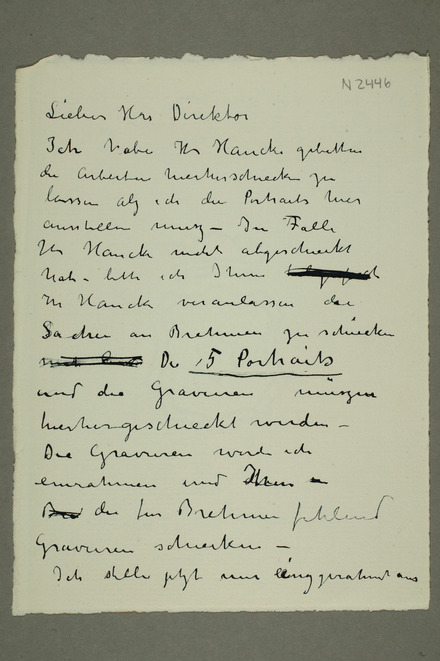 N 2446
Lieber Hrr Direktor
Ich habe Hr Hancke gebetten
die Arbeiten hierherschicken zu
lassen als ich die Portraits hier
ausstellen musz – Im Falle
Hr Hancke nicht abgeschickt
hat – bitte ich Ihnen
Hr Hancke veranlassen die
Sachen an Brehmen zu schicken
Die 5 Portraits
und die Gravuren müszen
hierhergeschieckt werden –
Die Gravuren werde ich
einrahmen und Ihnen
die fur Brehmen fehlend
Gravuren schicken –
Ich stelle jetzt nur aus